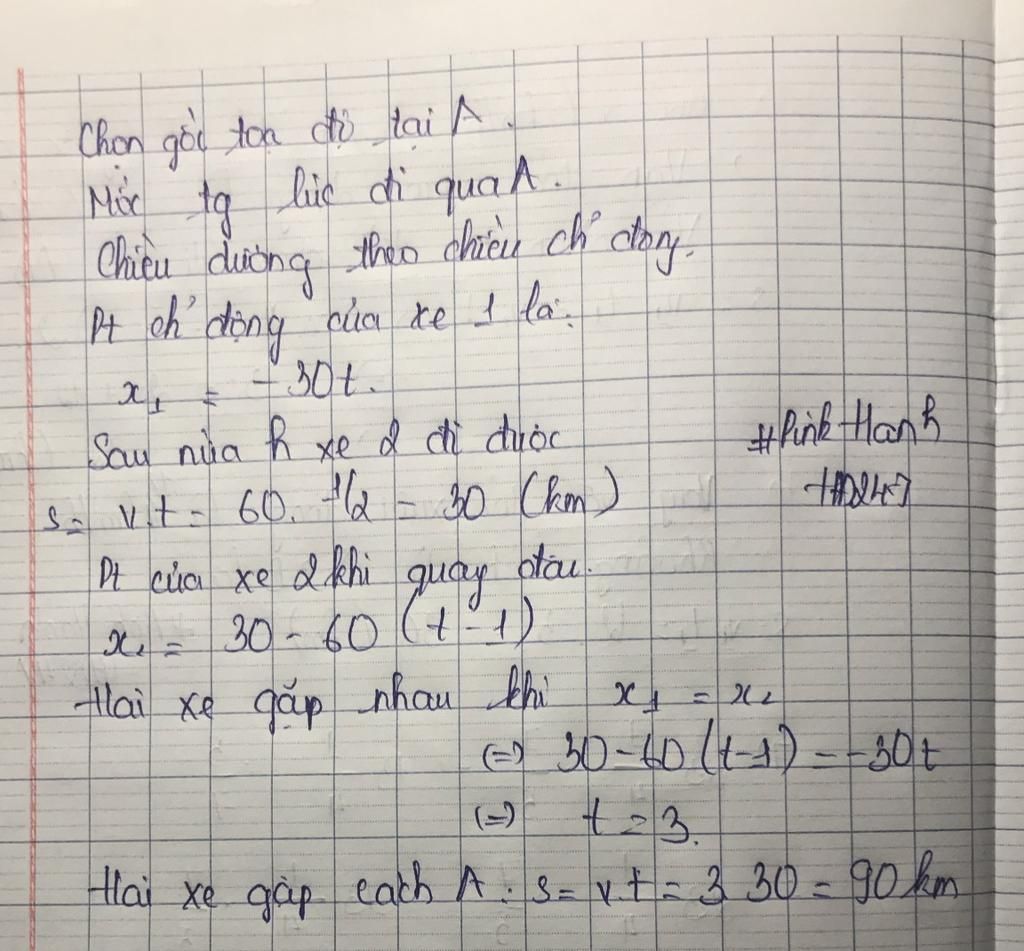 Chọn gốc toạ độ tại A.
Mốc tg lúc đi qua A.
Chiều dương theo chiều ch' động.
Pt ch' động của xe 1 là:
x₁ = -30t.
Sau nửa h xe 2 đi được
s = v.t = 60. 1/2 = 30 (km)
Pt của xe 2 khi quay đầu.
x₂ = 30 - 60 (t - 1)
Hai xe gặp nhau khi x₁ = x₂
(=) 30 - 60 (t-1) = -30t
(=) t = 3.
Hai xe gặp cách A : s = v.t = 3 30 = 90 km